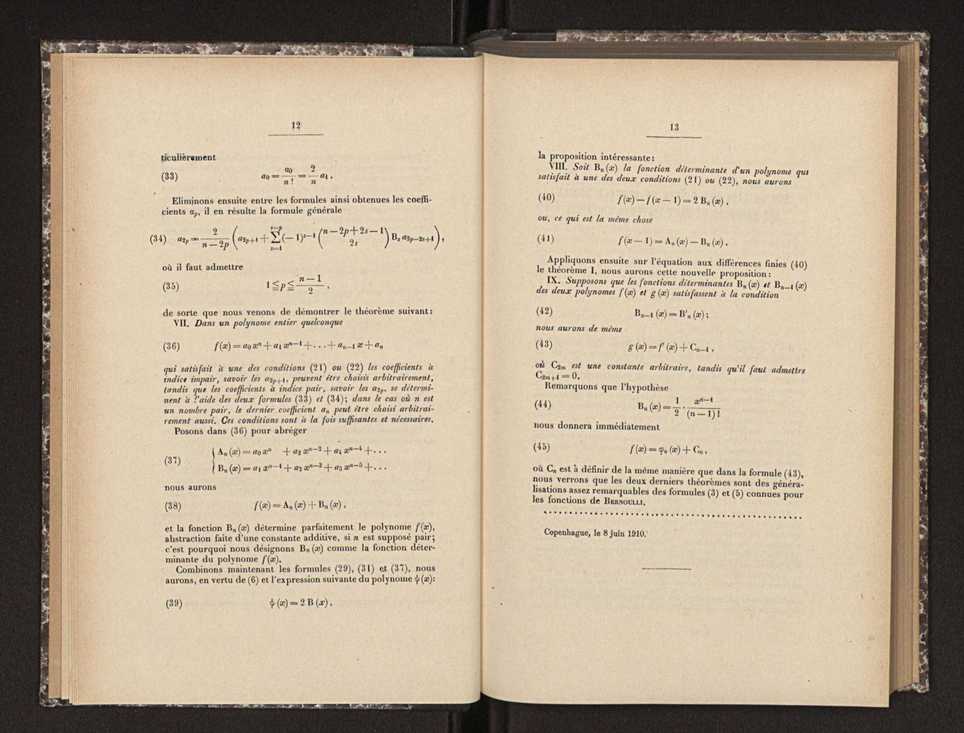 12
ticulièrement
(33) a₀ = a₀/n! = 2/n a₁ ,
Eliminons ensuite entre les formules ainsi obtenues les coeffi-
cients aₚ, il en résulte la formule générale
(34) a₂ₚ = 2/(n − 2p) ( a₂ₚ₊₁ + Σ (−1)ˢ⁻¹ (n − 2p + 2s − 1 / 2s) Bₛ a₂ₚ₋₂ₛ₊₁ ) ,
où il faut admettre
(35) 1 ≦ p ≦ (n − 1)/2 ,
de sorte que nous venons de démontrer le théorème suivant:
VII. Dans un polynome entier quelconque
(36) f(x) = a₀ xⁿ + a₁ xⁿ⁻¹ + . . . + aₙ₋₁ x + aₙ
qui satisfait à une des conditions (21) ou (22) les coefficients à
indice impair, savoir les a₂ₚ₊₁, peuvent être choisis arbitrairement,
tandis que les coefficients à indice pair, savoir les a₂ₚ, se détermi-
nent à l'aide des deux formules (33) et (34); dans le cas où n est
un nombre pair, le dernier coefficient aₙ peut être choisi arbitrai-
rement aussi. Ces conditions sont à la fois suffisantes et nécessaires.
Posons dans (36) pour abréger
(37) { Aₙ (x) = a₀ xⁿ + a₂ xⁿ⁻² + a₄ xⁿ⁻⁴ + . . .
Bₙ (x) = a₁ xⁿ⁻¹ + a₃ xⁿ⁻³ + a₅ xⁿ⁻⁵ + . . .
nous aurons
(38) f(x) = Aₙ (x) + Bₙ (x) ,
et la fonction Bₙ (x) détermine parfaitement le polynome f(x),
abstraction faite d'une constante additive, si n est supposé pair;
c'est pourquoi nous désignons Bₙ (x) comme la fonction déter-
minante du polynome f(x).
Combinons maintenant les formules (29), (31) et (37), nous
aurons, en vertu de (6) et l'expression suivante du polynome ψ (x):
(39) ψ (x) = 2 B (x) .
13
la proposition intéressante:
VIII. Soit Bₙ (x) la fonction déterminante d'un polynome qui
satisfait à une des deux conditions (21) ou (22), nous aurons
(40) f(x) − f(x − 1) = 2 Bₙ (x) ,
ou, ce qui est la même chose
(41) f(x − 1) = Aₙ (x) − Bₙ (x) .
Appliquons ensuite sur l'équation aux différences finies (40)
le théorème I, nous aurons cette nouvelle proposition:
IX. Supposons que les fonctions déterminantes Bₙ (x) et Bₙ₋₁ (x)
des deux polynomes f(x) et g (x) satisfassent à la condition
(42) Bₙ₋₁ (x) = B'ₙ (x) ;
nous aurons de même
(43) g (x) = f' (x) + Cₙ₋₁ ,
où C₂ₘ est une constante arbitraire, tandis qu'il faut admettre
C₂ₘ₊₁ = 0.
Remarquons que l'hypothèse
(44) Bₙ (x) = 1/2 · xⁿ⁻¹/(n − 1)!
nous donnera immédiatement
(45) f(x) = φₙ (x) + Cₙ ,
où Cₙ est à définir de la même manière que dans la formule (43),
nous verrons que les deux derniers théorèmes sont des généra-
lisations assez remarquables des formules (3) et (5) connues pour
les fonctions de BERNOULLI.
Copenhague, le 8 juin 1910.